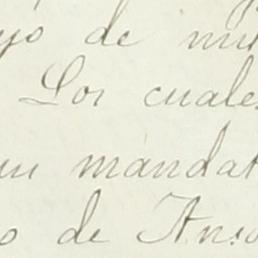 yo de mi
Los cuales
un mandat
o de Ans